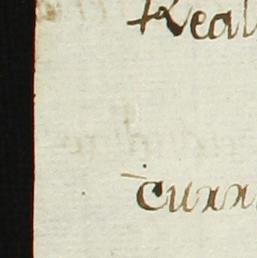 Real
curr